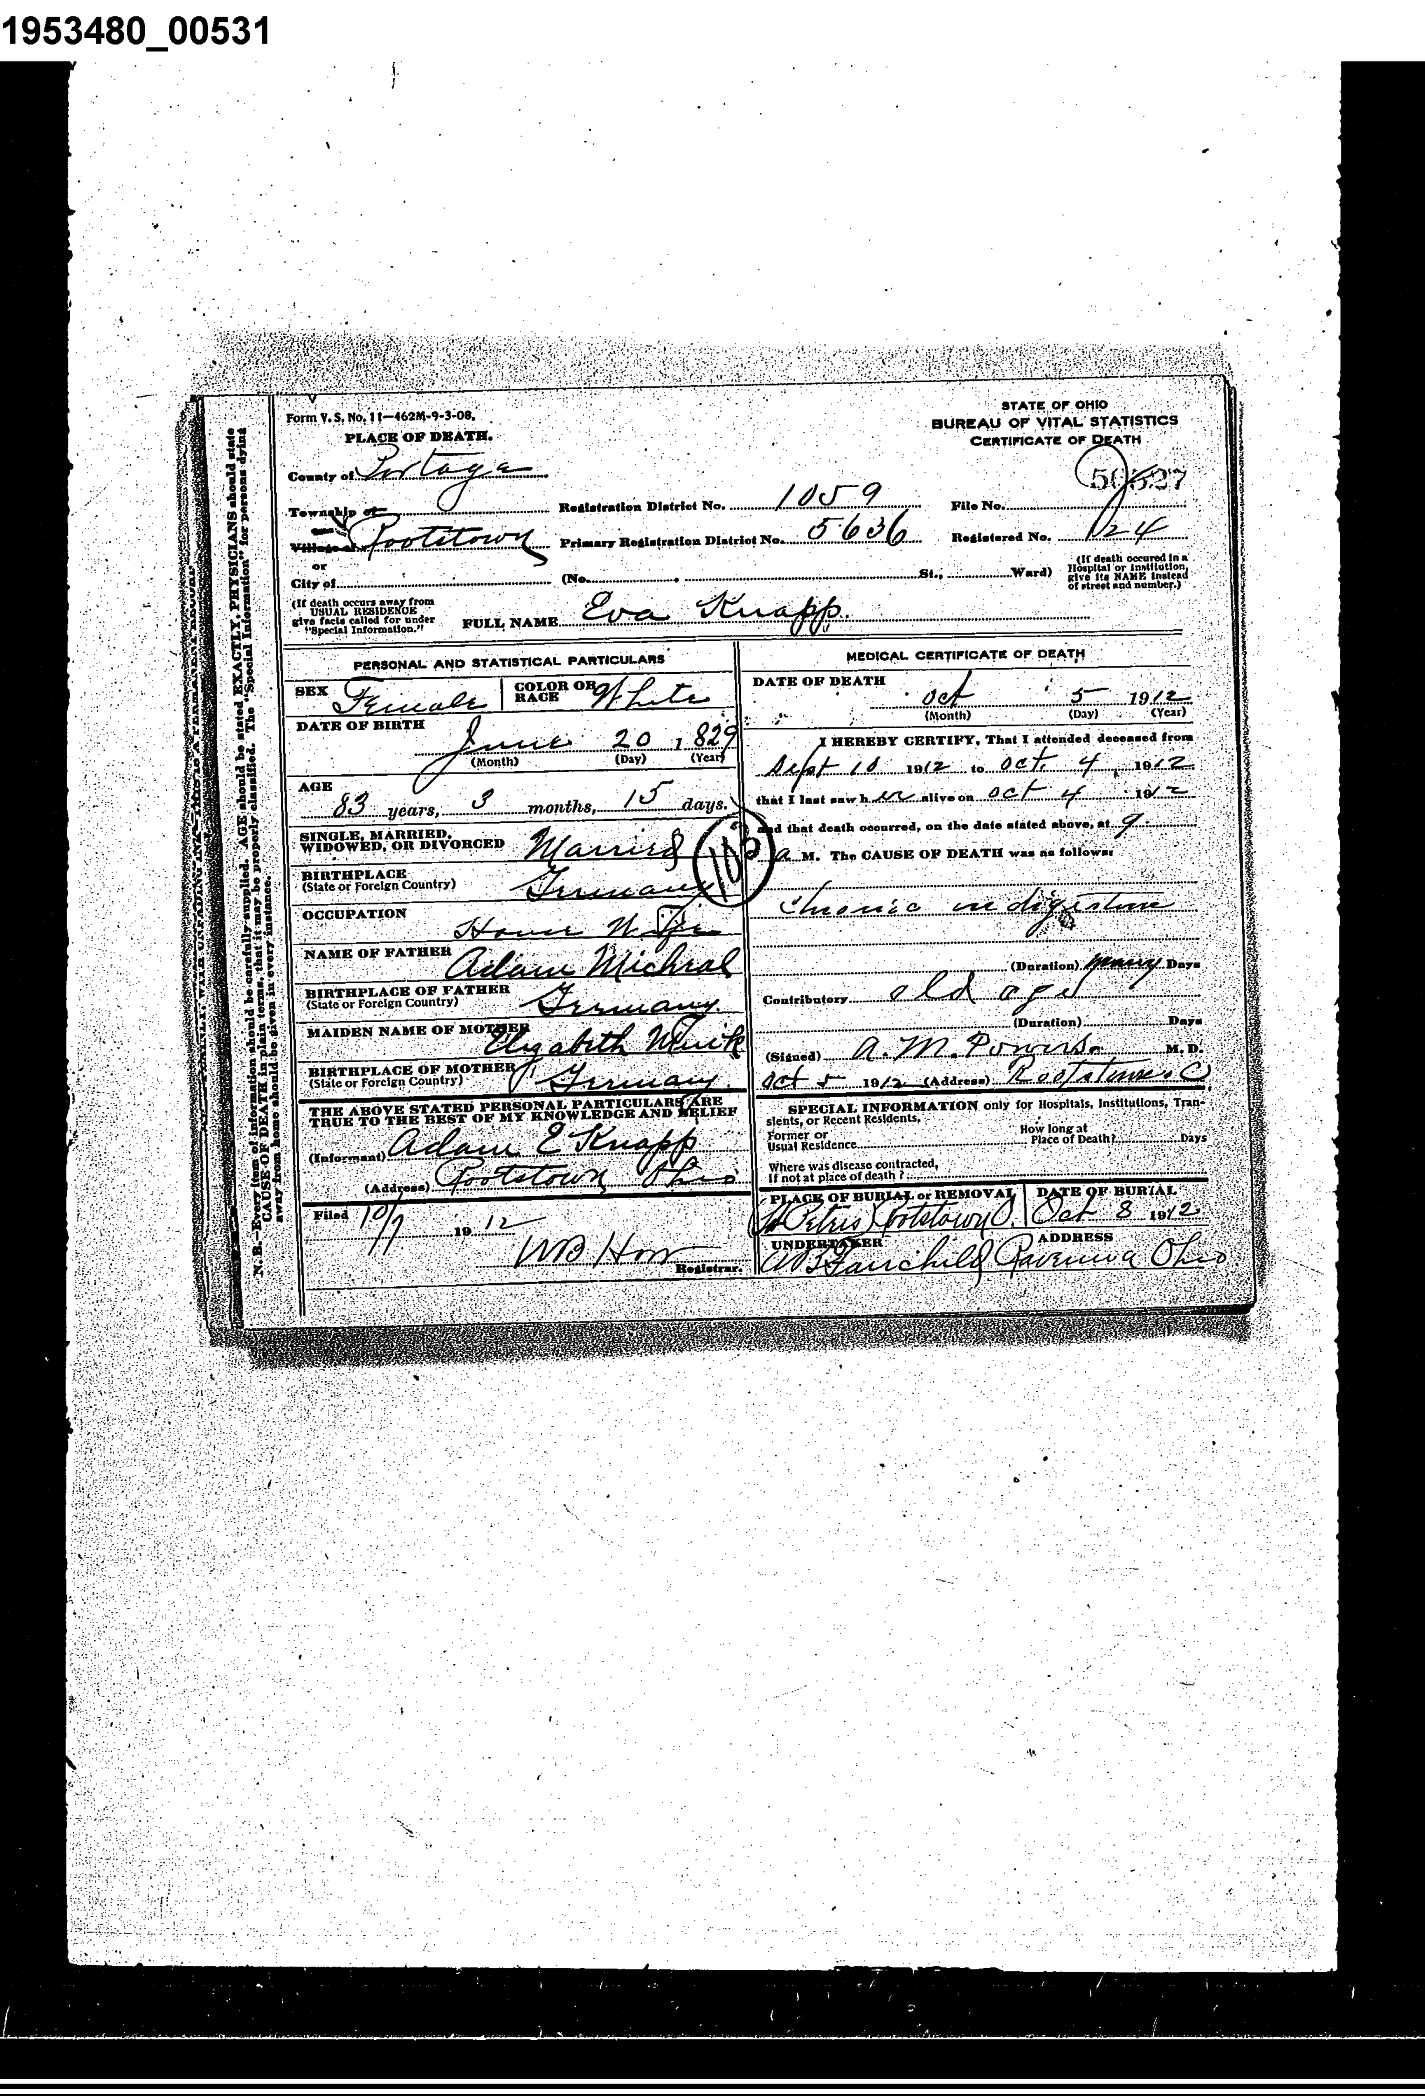 1953480_00531
Form V. S. No. 11—462M-9-3-08.
PLACE OF DEATH.
STATE OF OHIO
BUREAU OF VITAL STATISTICS
CERTIFICATE OF DEATH
County of Portage
Township of
Registration District No. 1059
File No.
Village of Rootstown
Primary Registration District No. 5636
Registered No. 124
or
City of
(No. , St., Ward)
(If death occured in a Hospital or Institution, give its NAME instead of street and number.)
(If death occurs away from USUAL RESIDENCE give facts called for under "Special Information.")
FULL NAME Eva Knapp
PERSONAL AND STATISTICAL PARTICULARS
SEX Female
COLOR OR RACE White
DATE OF BIRTH
June 20, 1829
(Month) (Day) (Year)
AGE
83 years, 3 months, 15 days.
SINGLE, MARRIED, WIDOWED, OR DIVORCED Married
BIRTHPLACE
(State or Foreign Country) Germany
OCCUPATION
House Wife
NAME OF FATHER Adam Michral
BIRTHPLACE OF FATHER
(State or Foreign Country) Germany.
MAIDEN NAME OF MOTHER Elizabeth
BIRTHPLACE OF MOTHER
(State or Foreign Country) Germany.
THE ABOVE STATED PERSONAL PARTICULARS ARE
TRUE TO THE BEST OF MY KNOWLEDGE AND BELIEF
(Informant) Adam E Knapp
(Address) Rootstown Ohio
Filed 10/7 1912
Registrar.
MEDICAL CERTIFICATE OF DEATH
DATE OF DEATH
Oct 5 1912
(Month) (Day) (Year)
I HEREBY CERTIFY, That I attended deceased from
Sept 10 1912 to Oct. 4, 1912
that I last saw her alive on Oct 4 1912
and that death occurred, on the date stated above, at 9
a M. The CAUSE OF DEATH was as follows:
103
Chronic indigestion
(Duration) many Days
Contributory old age
(Duration) Days
(Signed) A. M. Powers M. D.
Oct 5 1912 (Address) Rootstown O
SPECIAL INFORMATION only for Hospitals, Institutions, Tran-
sients, or Recent Residents.
Former or Usual Residence
How long at Place of Death? Days
Where was disease contracted,
If not at place of death?
PLACE OF BURIAL or REMOVAL
St Petris Rootstown O.
DATE OF BURIAL
Oct 8 1912
UNDERTAKER
Fairchild
ADDRESS
Ravenna Ohio
N. B.—Every item of information should be carefully supplied. AGE should be stated EXACTLY. PHYSICIANS should state
CAUSE OF DEATH in plain terms, that it may be properly classified. The "Special Information" for persons dying
away from home should be given in every instance.